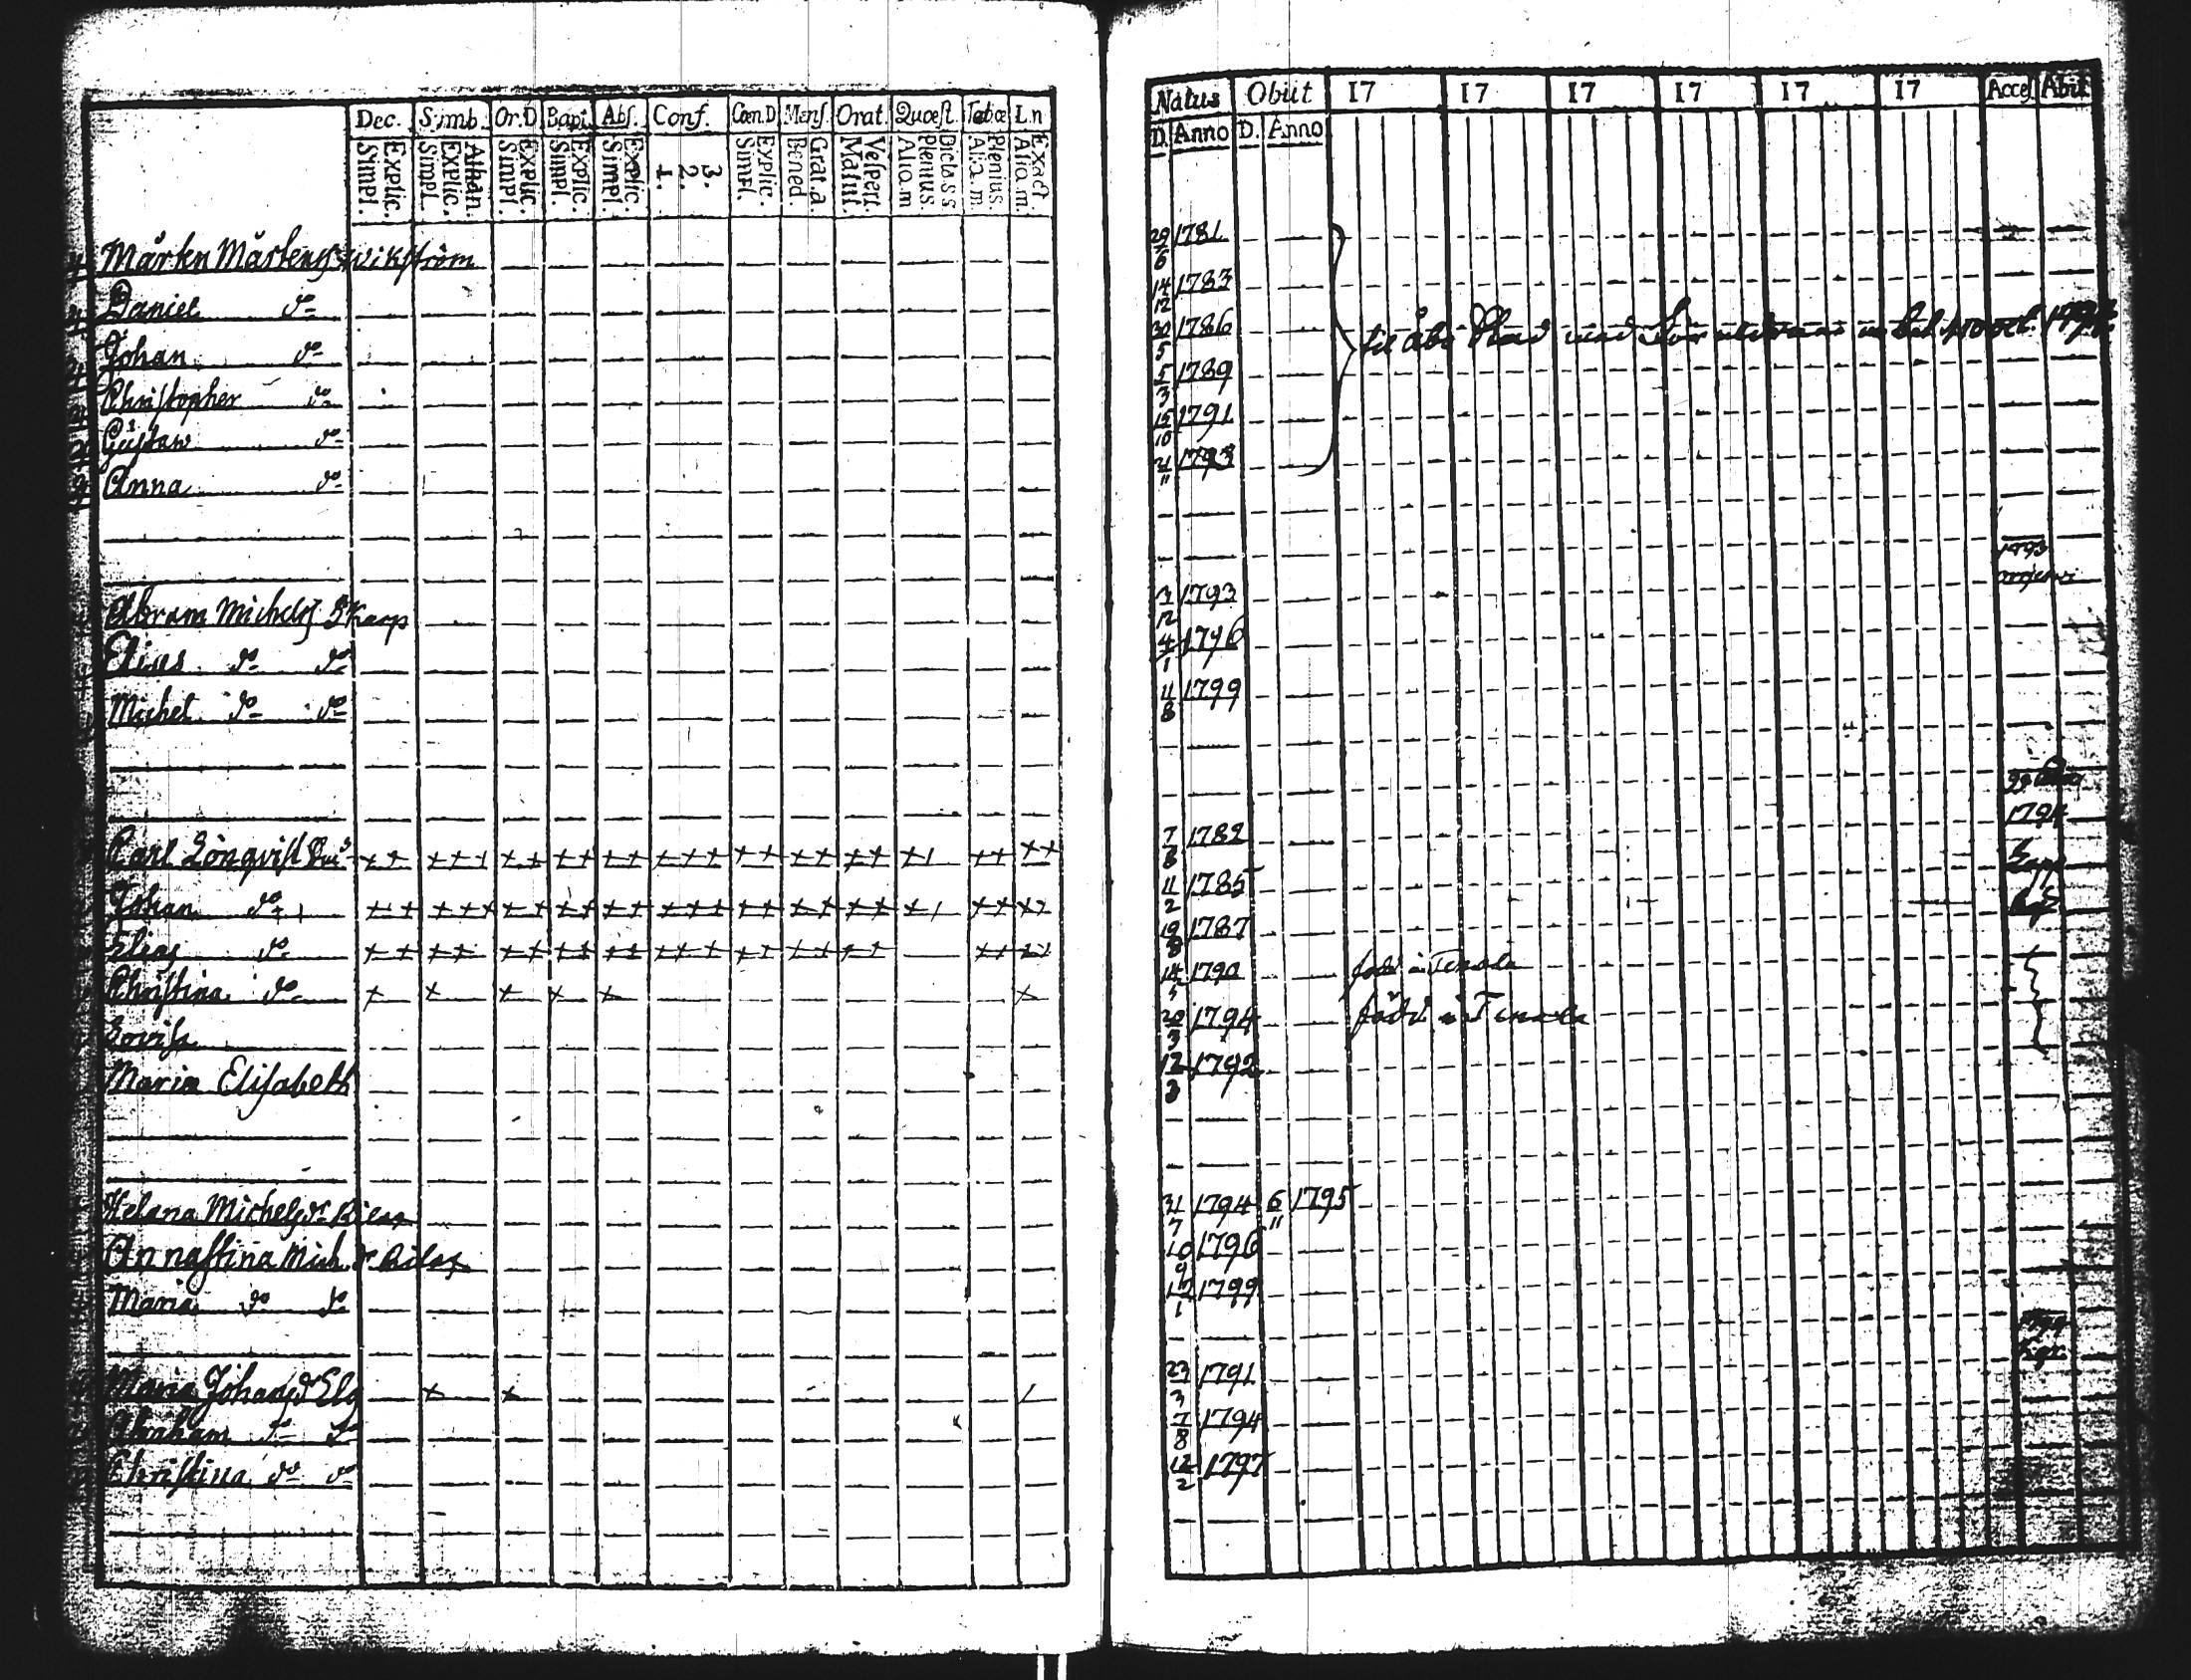 Dec. Simb. Or.D Bapt. Abs. Conf. Cœn.D Mens. Orat. Quæst. Tabæ L.n
Simpl. Explic. Simpl. Explic. Athan. Simpl. Explic. Simpl. Explic. Simpl. Explic. 1. 2. 3. Simpl. Explic. Bened. Grat.a. Matut. Vespert. Aliq.m Plenius. Dicta S.S. Aliq.m. Plenius. Aliq.m. Exact.
Mårten Mårtens wikström
Daniel do
Johan do
Christopher do
Gustaw do
Anna do
Abram Michels Skarp
Elias do do
Michel do do
Carl Lönqvist
Johan do
Elias do
Christina do
Lovisa
Maria Elisabeth
Helena Michelsdr
Annastina Mich dr
Maria do do
Maria Johansdr
Abraham do do
Christina do do
Natus Obiit 17 17 17 17 17 17 Acces. Abiit
D. Anno D. Anno
29/6 1781
14/12 1783
30/5 1786
til Åbo Stad med
5/3 1789
15/10 1791
21/11 1793
1793
3/12 1793
4/1 1796
11/8 1799
1794
7/8 1782
11/2 1785
19/8 1787
14/5 1790 född i Tenala
20/3 1794 född i Tenala
12/3 1792
31/7 1794 6/11 1795
10/9 1796
12/1 1799
1799
23/3 1791
7/8 1794
12/2 1797